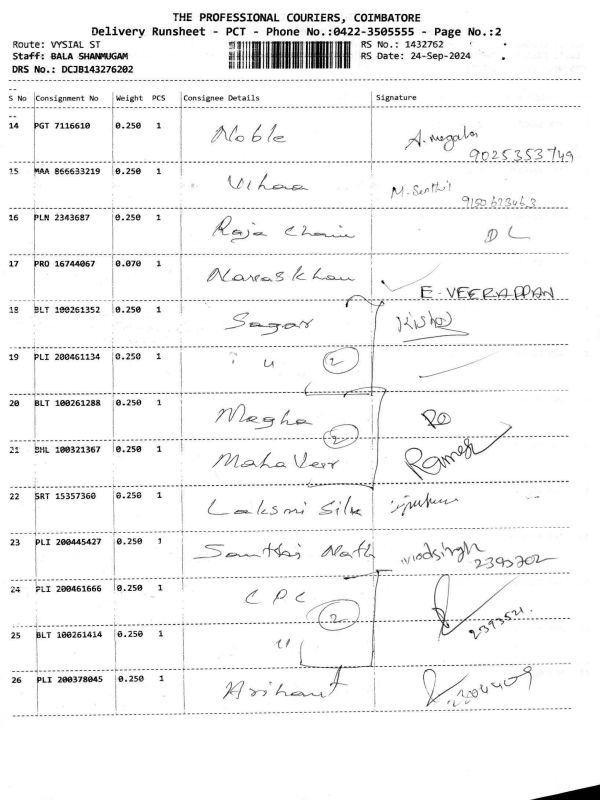 THE PROFESSIONAL COURIERS, COIMBATORE
Delivery Runsheet - PCT - Phone No.:0422-3505555 - Page No.:2
Route: VYSIAL ST RS No.: 1432762
Staff: BALA SHANMUGAM RS Date: 24-Sep-2024
DRS No.: DCJB143276202
S No Consignment No Weight PCS Consignee Details Signature
14 PGT 7116610 0.250 1 Noble
9025353749
15 MAA 866633219 0.250 1 Vihaa M. Senthil
16 PLN 2343687 0.250 1 Raja Chain DL
17 PRO 16744067 0.070 1 Nawas Khan
E. VEERAPPAN
18 BLT 100261352 0.250 1 Sagar Kishor
19 PLI 200461134 0.250 1 " 2
20 BLT 100261288 0.250 1 Megha
2
21 BHL 100321367 0.250 1 Mahaveer Ramesh
22 SRT 15357360 0.250 1 Laksmi Silk
23 PLI 200445427 0.250 1 Nath
2393202
24 PLI 200461666 0.250 1 CPC
2 2393521.
25 BLT 100261414 0.250 1 "
26 PLI 200378045 0.250 1 Arihant